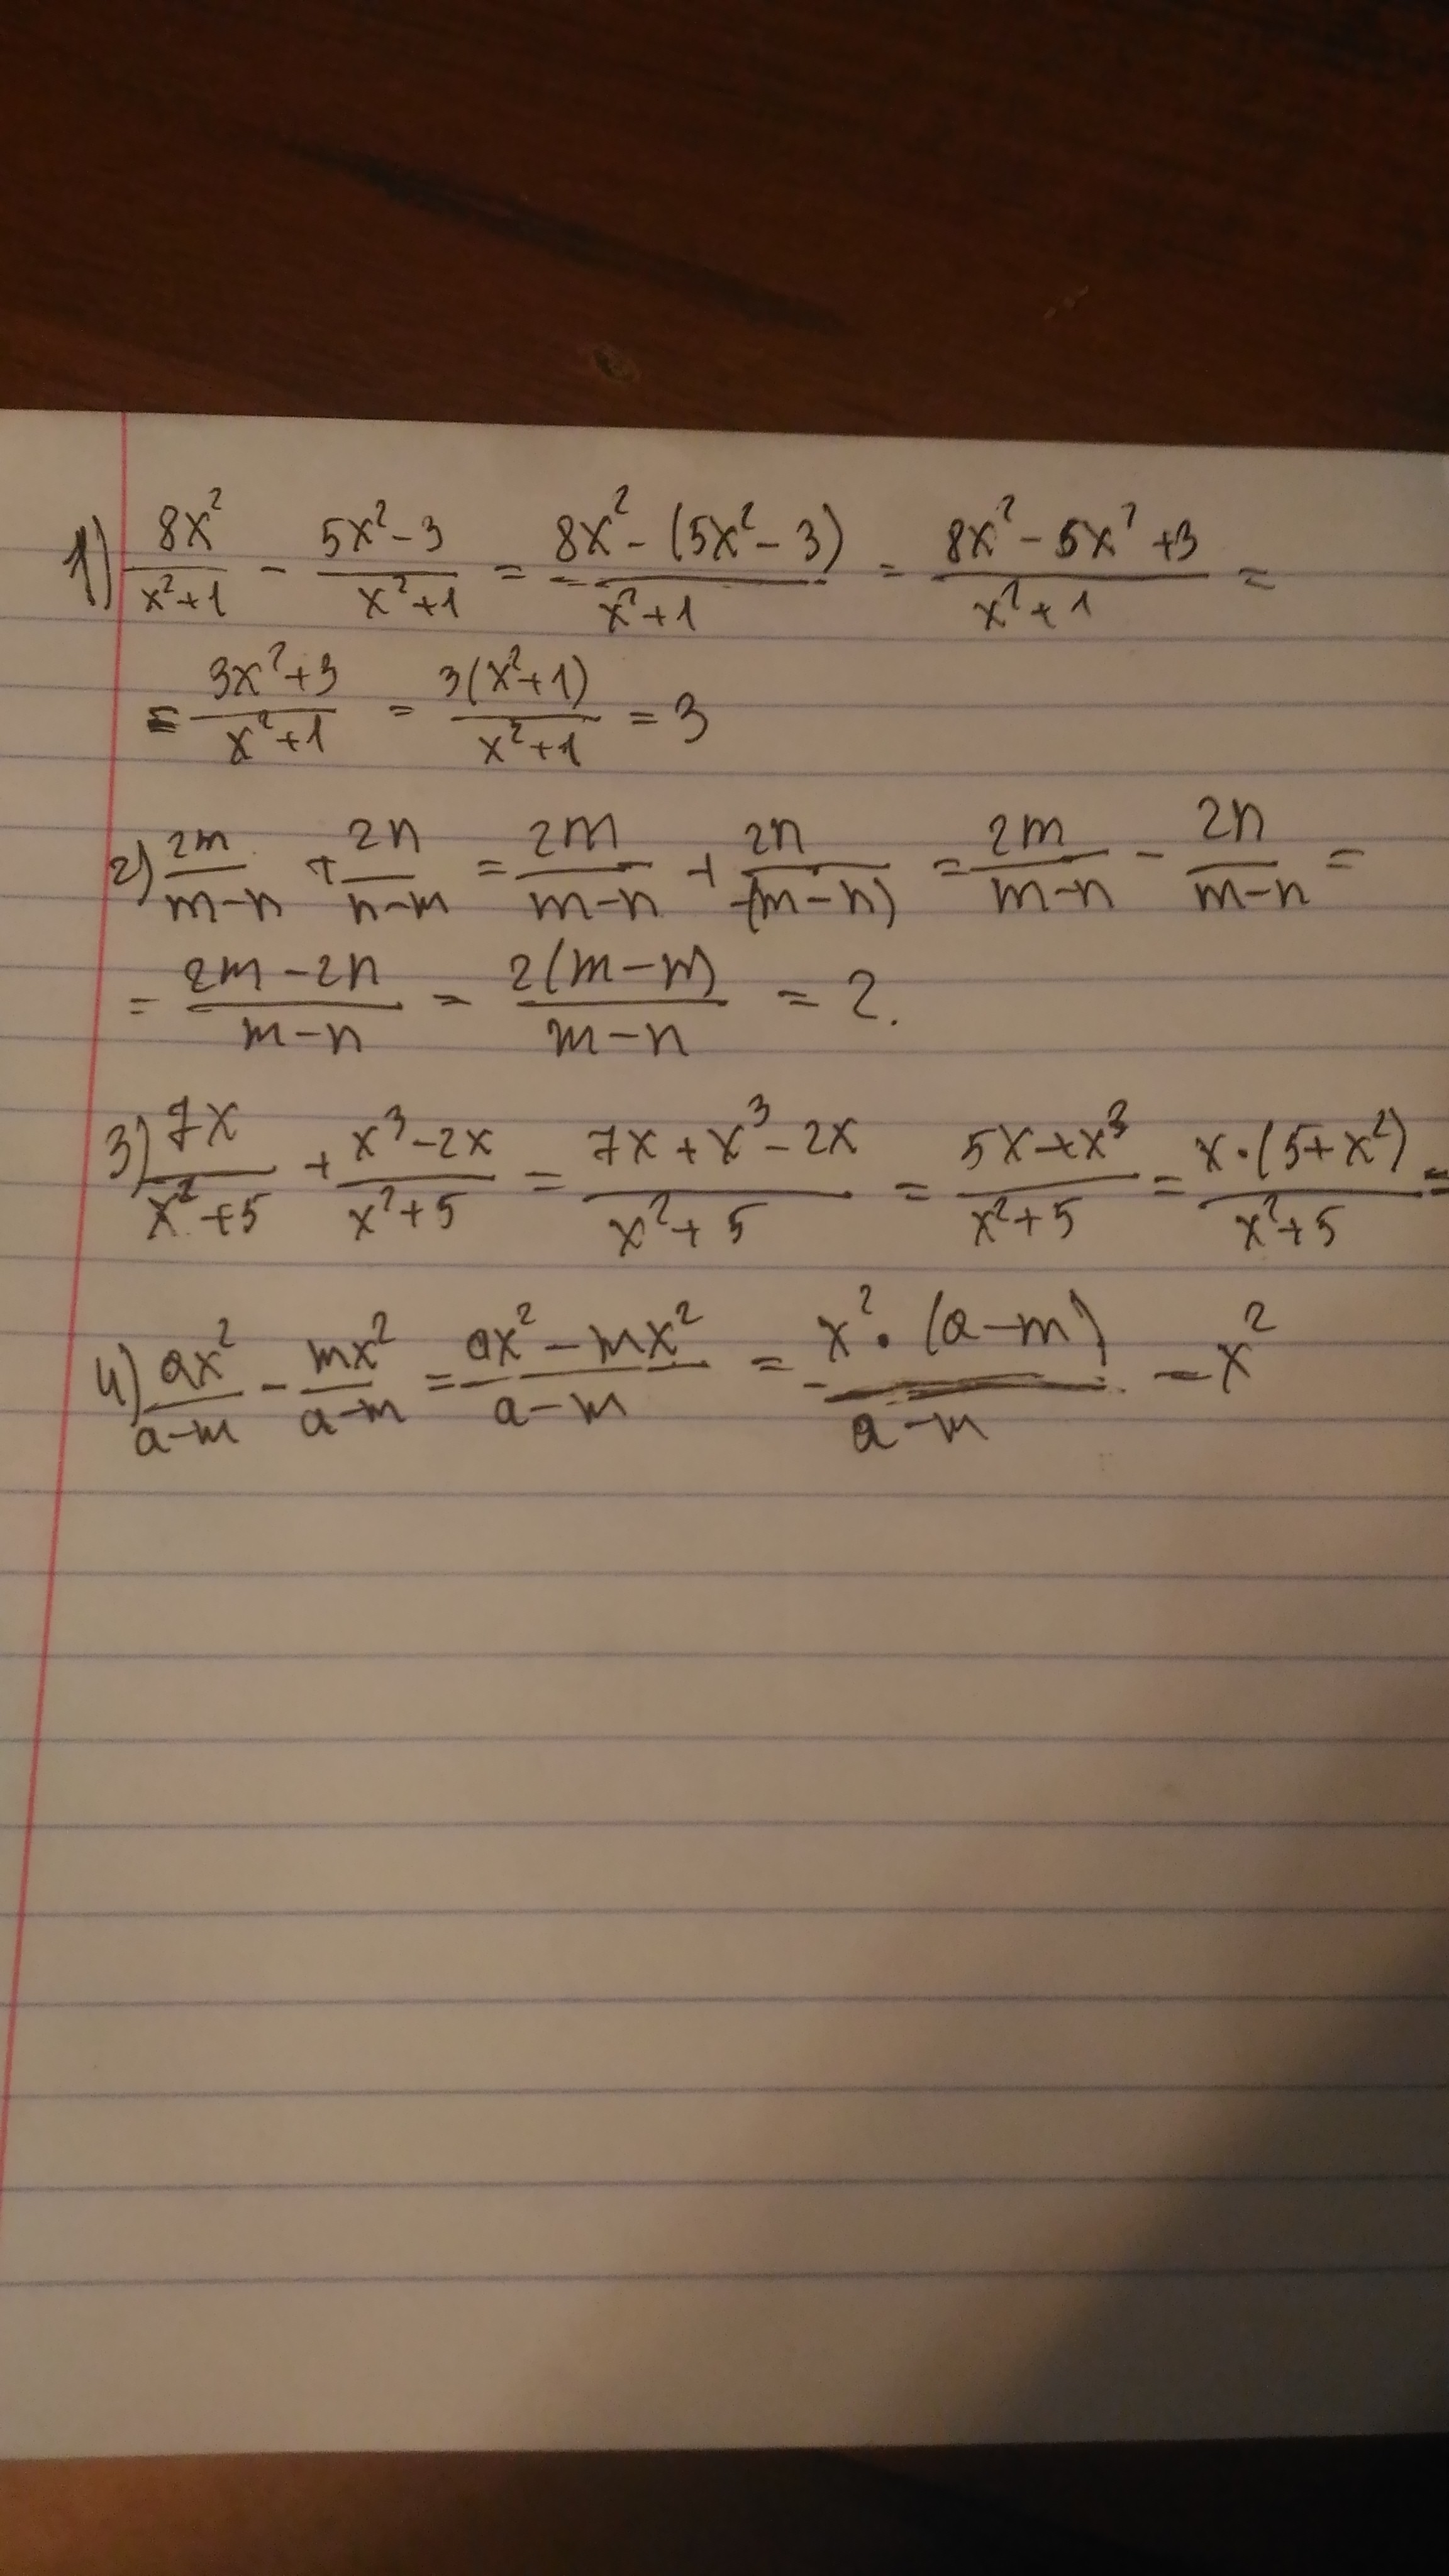 1) 8x²/(x²+1) - (5x²-3)/(x²+1) = (8x² - (5x²-3))/(x²+1) = (8x² - 5x² + 3)/(x²+1) =
= (3x²+3)/(x²+1) = 3(x²+1)/(x²+1) = 3
2) 2m/(m-n) + 2n/(n-m) = 2m/(m-n) + 2n/(-(m-n)) = 2m/(m-n) - 2n/(m-n) =
= (2m-2n)/(m-n) = 2(m-m)/(m-n) = 2.
3) 7x/(x²+5) + (x³-2x)/(x²+5) = (7x+x³-2x)/(x²+5) = (5x+x³)/(x²+5) = x·(5+x²)/(x²+5) =
4) ax²/(a-m) - mx²/(a-m) = (ax²-mx²)/(a-m) = x²·(a-m)/(a-m) - x²